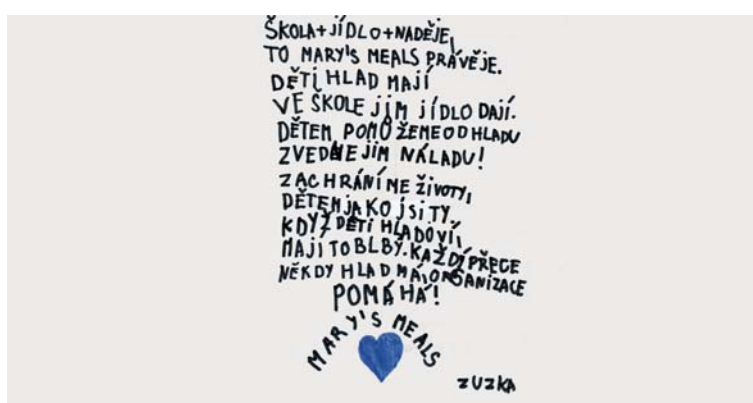 ŠKOLA+JÍDLO+NADĚJE,
TO MARY'S MEALS PRÁVĚJE.
DĚTI HLAD MAJÍ
VE ŠKOLE JIM JÍDLO DAJÍ.
DĚTEM POMŮŽEME OD HLADU
ZVEDNEME JIM NÁLADU!
ZACHRÁNÍME ŽIVOTY,
DĚTEM JAKO JSI TY.
KDYŽ DĚTI HLADOVÍ,
MAJÍ TO BLBÝ. KAŽDÍ PŘECE
NĚKDY HLAD MÁ, ORGANIZACE
POMÁHÁ!
MARY'S MEALS
ZUZKA